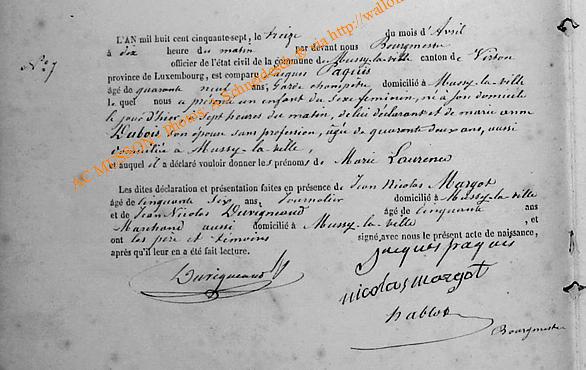 N° 7
L'AN mil huit cent cinquante-sept, le treize du mois d'Avril
à dix heure du matin par devant nous Bourgmestre
officier de l'état civil de la commune de Mussy-la-ville canton de Virton
province de Luxembourg, est comparu Jacques Paquis
âgé de quarante neuf ans, Garde champêtre domicilié à Mussy-la-ville
le quel nous a présenté un enfant du sexe feminin, né à son domicile
le jour d'hier à sept heures du matin, de lui déclarant et de marie anne
Dubois son épouse sans profession, âgée de quarante deux ans, aussi
domiciliée à Mussy-la-ville,
et auquel il a déclaré vouloir donner les prénoms de Marie Laurence
Les dites déclaration et présentation faites en présence de Jean Nicolas Margot
âgé de cinquante six ans, Journalier domicilié à Mussy-la-ville
et de Jean Nicolas Duvigneaud âgé de cinquante ans
Marchand aussi domicilié à Mussy-la-ville, et
ont les père et témoins signé avec nous le présent acte de naissance,
après qu'il leur en a été fait lecture.
jacques paquis
Duvigneaud
nicolas margot
Bourgmestre
AC MUSSON, photos A. Schneider via http://wallon